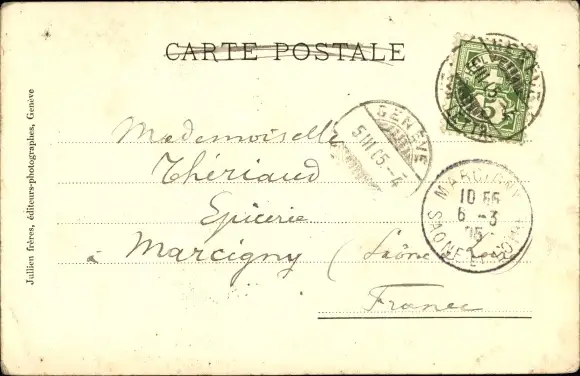 CARTE POSTALE
GENÈVE
5 III 05.-4
MARCIGNY
10 55
6 -3
05
SAONE ET LOIRE
Mademoiselle
Thériaud
Epicerie
à Marcigny (Saône Loire
France
Jullien frères, éditeurs-photographes, Genève